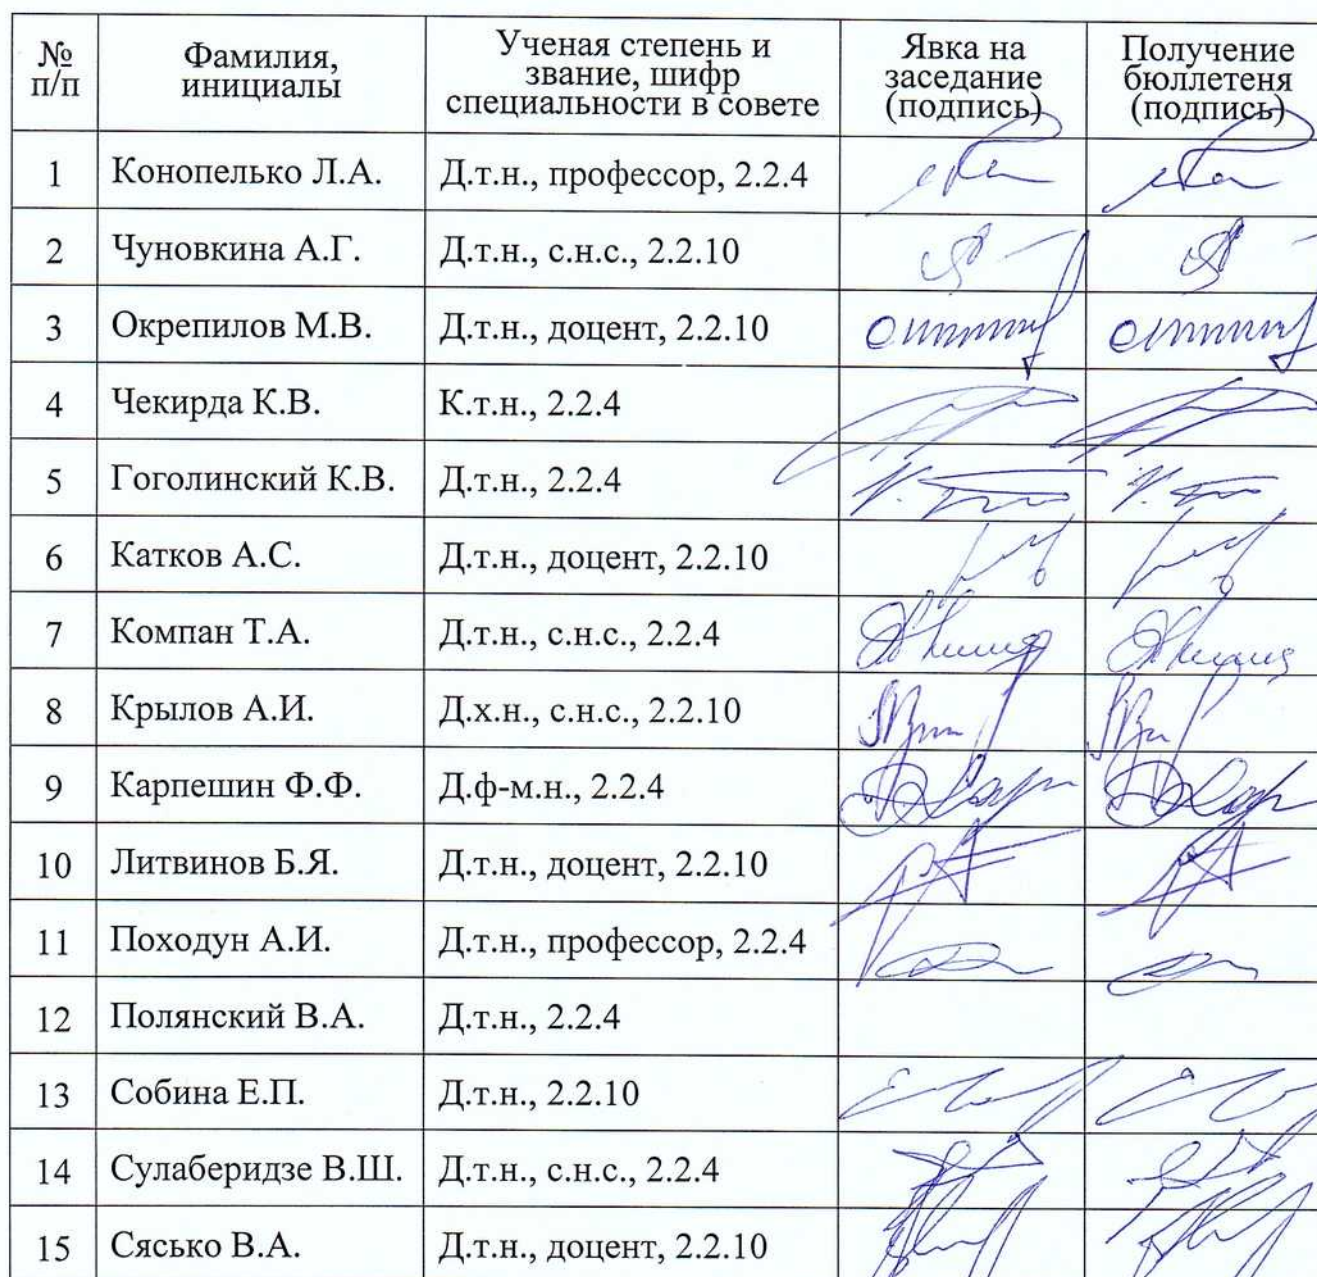 № п/п Фамилия, инициалы Ученая степень и звание, шифр специальности в совете Явка на заседание (подпись) Получение бюллетеня (подпись)
1 Конопелько Л.А. Д.т.н., профессор, 2.2.4
2 Чуновкина А.Г. Д.т.н., с.н.с., 2.2.10
3 Окрепилов М.В. Д.т.н., доцент, 2.2.10
4 Чекирда К.В. К.т.н., 2.2.4
5 Гоголинский К.В. Д.т.н., 2.2.4
6 Катков А.С. Д.т.н., доцент, 2.2.10
7 Компан Т.А. Д.т.н., с.н.с., 2.2.4
8 Крылов А.И. Д.х.н., с.н.с., 2.2.10
9 Карпешин Ф.Ф. Д.ф-м.н., 2.2.4
10 Литвинов Б.Я. Д.т.н., доцент, 2.2.10
11 Походун А.И. Д.т.н., профессор, 2.2.4
12 Полянский В.А. Д.т.н., 2.2.4
13 Собина Е.П. Д.т.н., 2.2.10
14 Сулаберидзе В.Ш. Д.т.н., с.н.с., 2.2.4
15 Сясько В.А. Д.т.н., доцент, 2.2.10